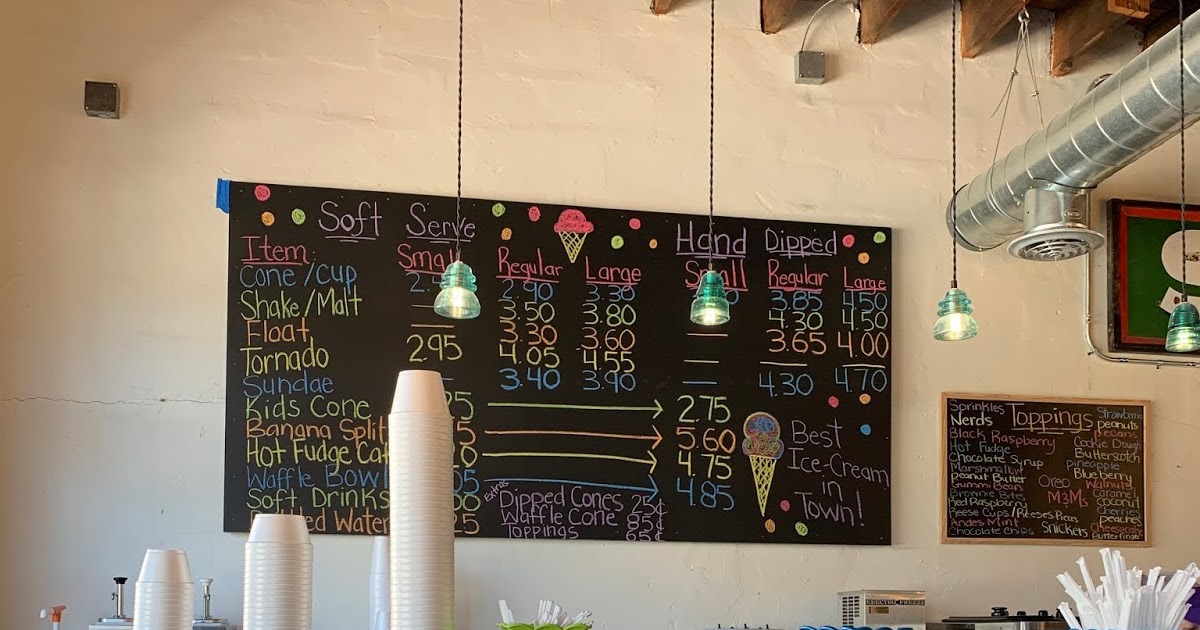 Soft Serve Hand Dipped
Item Small Regular Large Small Regular Large
Cone/Cup 2.90 3.30 3.85 4.50
Shake/Malt 3.50 3.80 4.30 4.50
Float 3.30 3.60 3.65 4.00
Tornado 2.95 4.05 4.55
Sundae 3.40 3.90 4.30 4.70
Kids Cone 2.75
Banana Split 5.60
Hot Fudge 4.75
Waffle Bowl 4.85
Soft Drinks
Water
Extras
Dipped Cones 25¢
Waffle Cone 85¢
Toppings 65¢
Best
Ice-Cream
in
Town!
Toppings
Sprinkles
Nerds
Black Raspberry
Hot Fudge
Chocolate Syrup
Marshmallow
Peanut Butter
Gummi Bears
Brownie Bites
Red Raspberry
Reese Cups/Reeses Pieces
Andes Mint
Chocolate Chips
Oreo
M&Ms
Snickers
Strawberry
Peanuts
Pecans
Cookie Dough
Butterscotch
Pineapple
Blueberry
Walnuts
Caramel
Coconut
Cherries
Peaches
Cheesecake
Butterfinger